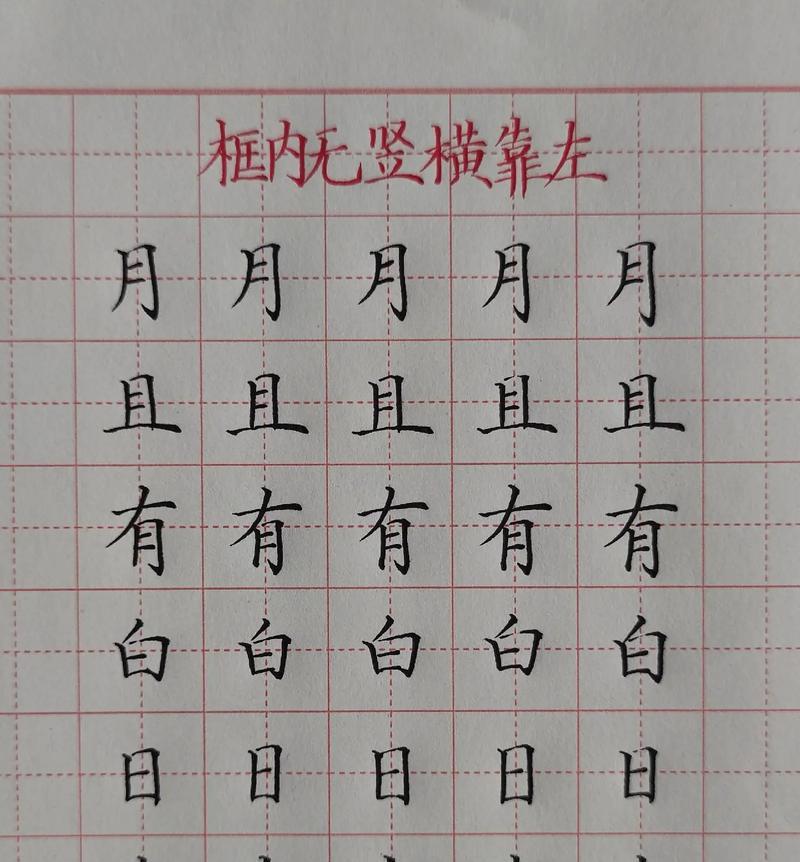 框内无竖横靠左
月月月月月
且且且且且
有有有有有
白白白白白
日日日日日